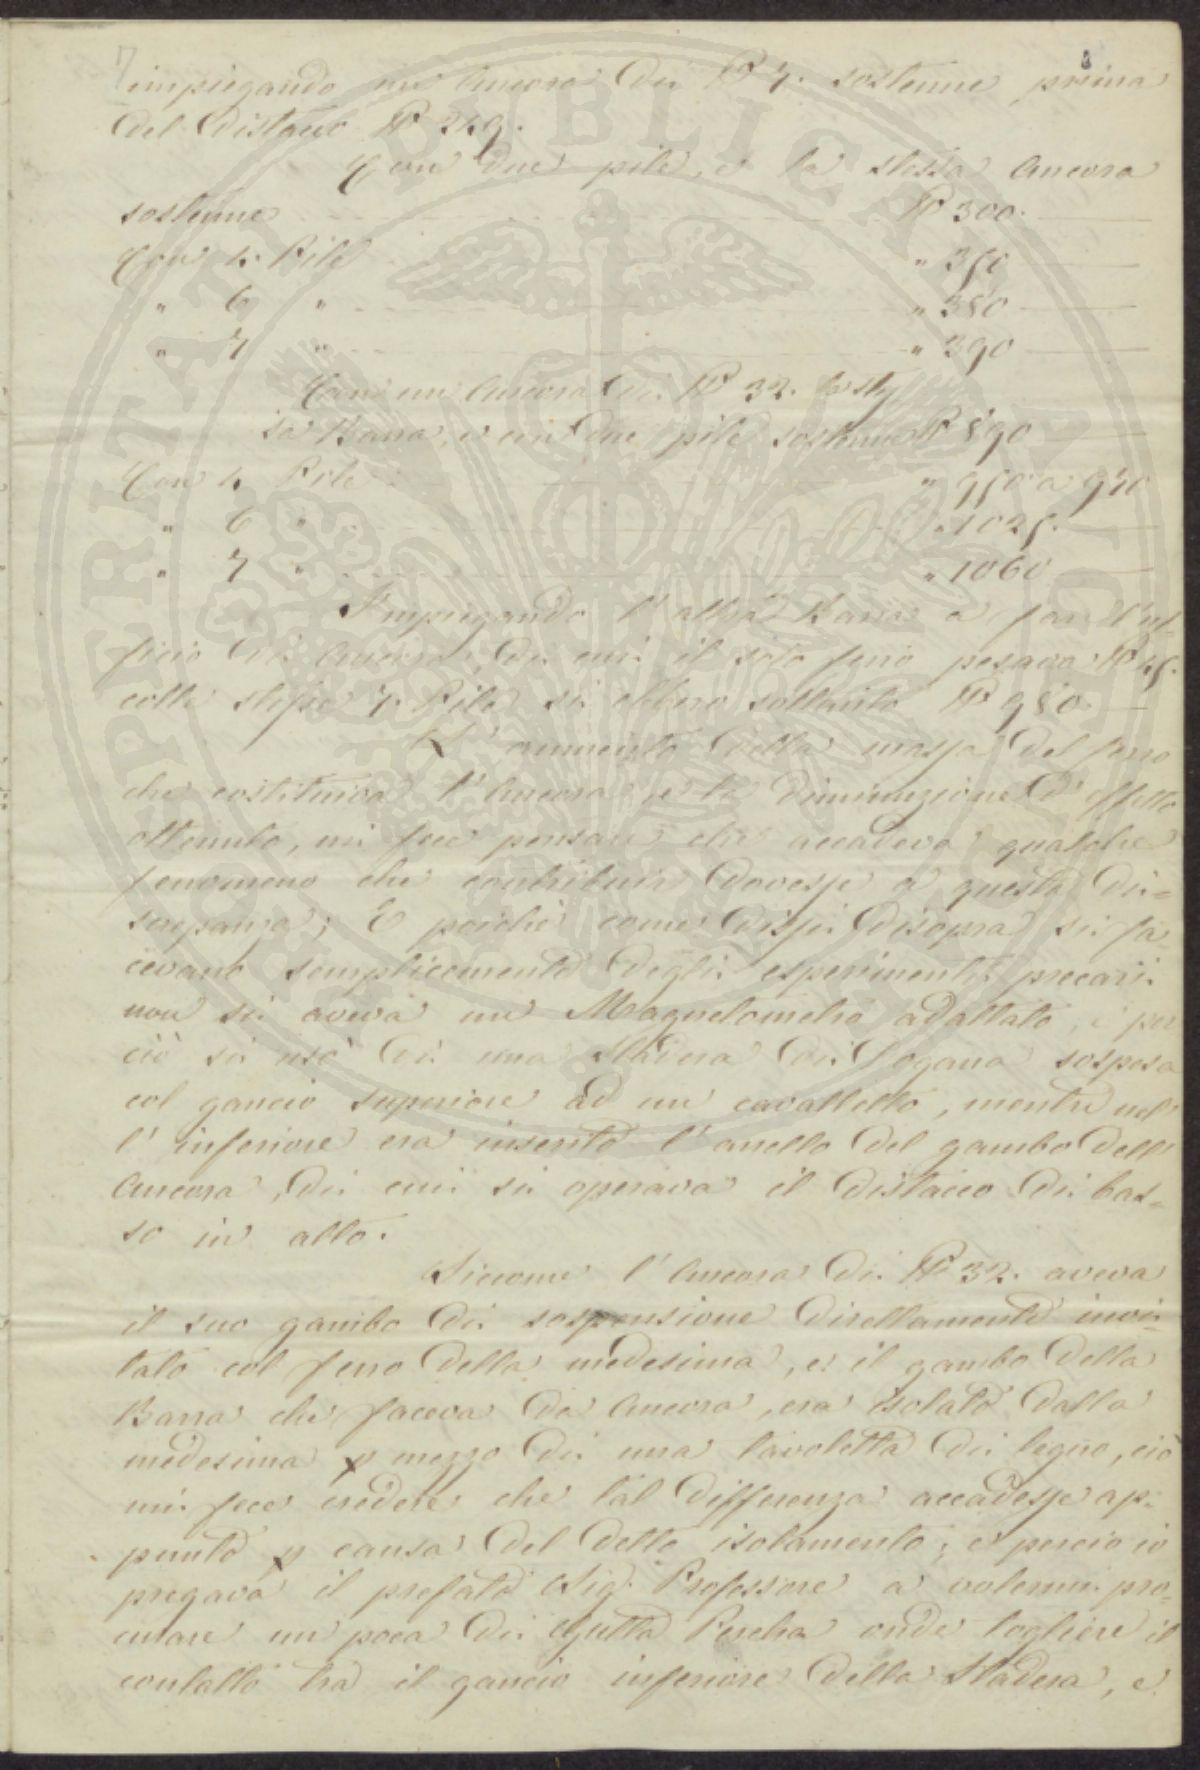 impiegando un Ancora di ℔ 7. sostenne prima
del distacco ℔ 249.
Con due pile, e la stessa Ancora
sostenne ℔ 300.
Con 4. Pile " 350
" 6 " " 380
" 7 " " 390
Con un Ancora di ℔ 32.
sa Barra, e con due pile sostenne ℔ 890
Con 4 Pile " 950 a 970
" 6 " " 1025.
" 7 " " 1060
Impiegando l'altra Barra a far l'uf-
ficio di Ancora, di cui il solo ferro pesava ℔ 45.
colle stesse 7. Pile si ebbero soltanto ℔ 980.
L'aumento della massa del ferro
che costituiva l'Ancora, e la diminuzione d'effetto
ottenuto, mi fece pensare che accadeva qualche
fenomeno che contribuir dovesse a questa di=
screpanza; E poichè come dissi disopra si fa-
cevano semplicemente degli esperimenti precarii
non si aveva un Magnetometro adattato, e per
ciò si usò di una Stadera di Dogana sospesa
col gancio superiore ad un cavalletto, mentre nel
l'inferiore era inserito l'anello del gambo dell'
Ancora, di cui si operava il distacco di bas-
so in alto.
Siccome l'Ancora di ℔ 32. aveva
il suo gambo di sospensione direttamente invi-
tato col ferro della medesima, e il gambo della
Barra che faceva da Ancora, era isolato dalla
medesima p mezzo di una tavoletta di legno, ciò
mi fece credere che tal differenza accadesse ap-
punto p causa del detto isolamento; e perciò io
pregava il prefato Sig. Professore a volermi pro-
curare un poca di Gutta Percha onde togliere il
contatto tra il gancio inferiore della Stadera, e